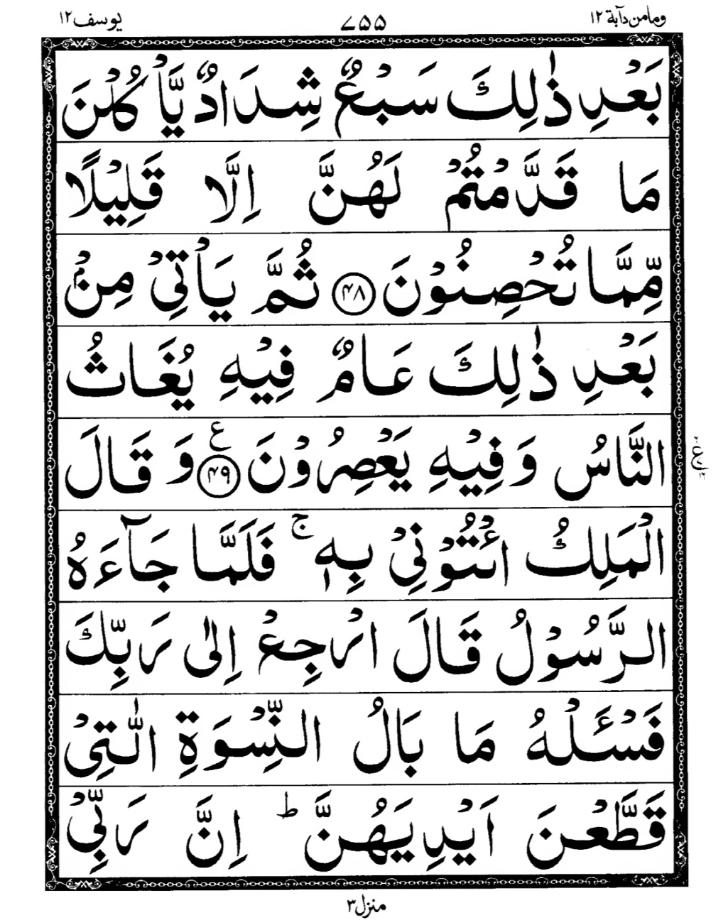 ومامن دآبة ١٢ ٧٥٥ يوسف ١٢
بَعْدِ ذٰلِكَ سَبْعٌ شِدَادٌ يَّاْكُلْنَ
مَا قَدَّمْتُمْ لَهُنَّ اِلَّا قَلِيْلًا
مِّمَّا تُحْصِنُوْنَ ﴿۴۸﴾ ثُمَّ يَاْتِيْ مِنْۢ
بَعْدِ ذٰلِكَ عَامٌ فِيْهِ يُغَاثُ
النَّاسُ وَفِيْهِ يَعْصِرُوْنَ ﴿۴۹﴾ ع وَ قَالَ
الْمَلِكُ ائْتُوْنِيْ بِهٖ ۚ فَلَمَّا جَآءَهُ
الرَّسُوْلُ قَالَ ارْجِعْ اِلٰى رَبِّكَ
فَسْـَٔلْهُ مَا بَالُ النِّسْوَةِ الّٰتِيْ
قَطَّعْنَ اَيْدِيَهُنَّ ؕ اِنَّ رَبِّيْ
منزل ٣